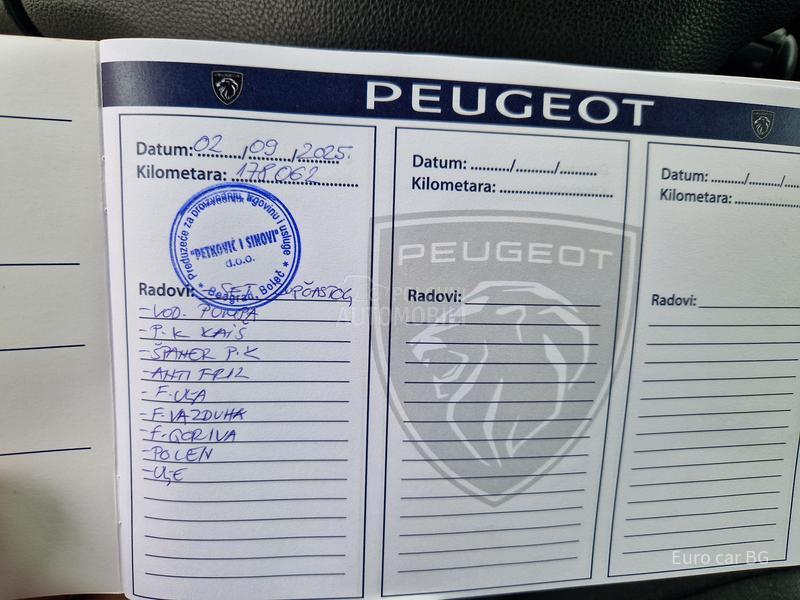 PEUGEOT
Datum: 02/09/2025.
Kilometara: 178 062
Preduzeće za proizvodnju, trgovinu i usluge
"PETKOVIĆ I SINOVI"
d.o.o.
* Beograd, Boleč *
Radovi: - SET ZUPČASTOG
- VOD. PUMPA
- P.K KAIŠ
- ŠPANER P.K
- ANTI FRIZ
- F. ULJA
- F. VAZDUHA
- F. GORIVA
- POLEN
- ULJE
Datum: ........../........../..........
Kilometara: ..............................
Radovi:
Datum: ........../........../
Kilometara: ....................
Radovi:
PEUGEOT
POLOVNI
AUTOMOBILI
Euro car BG